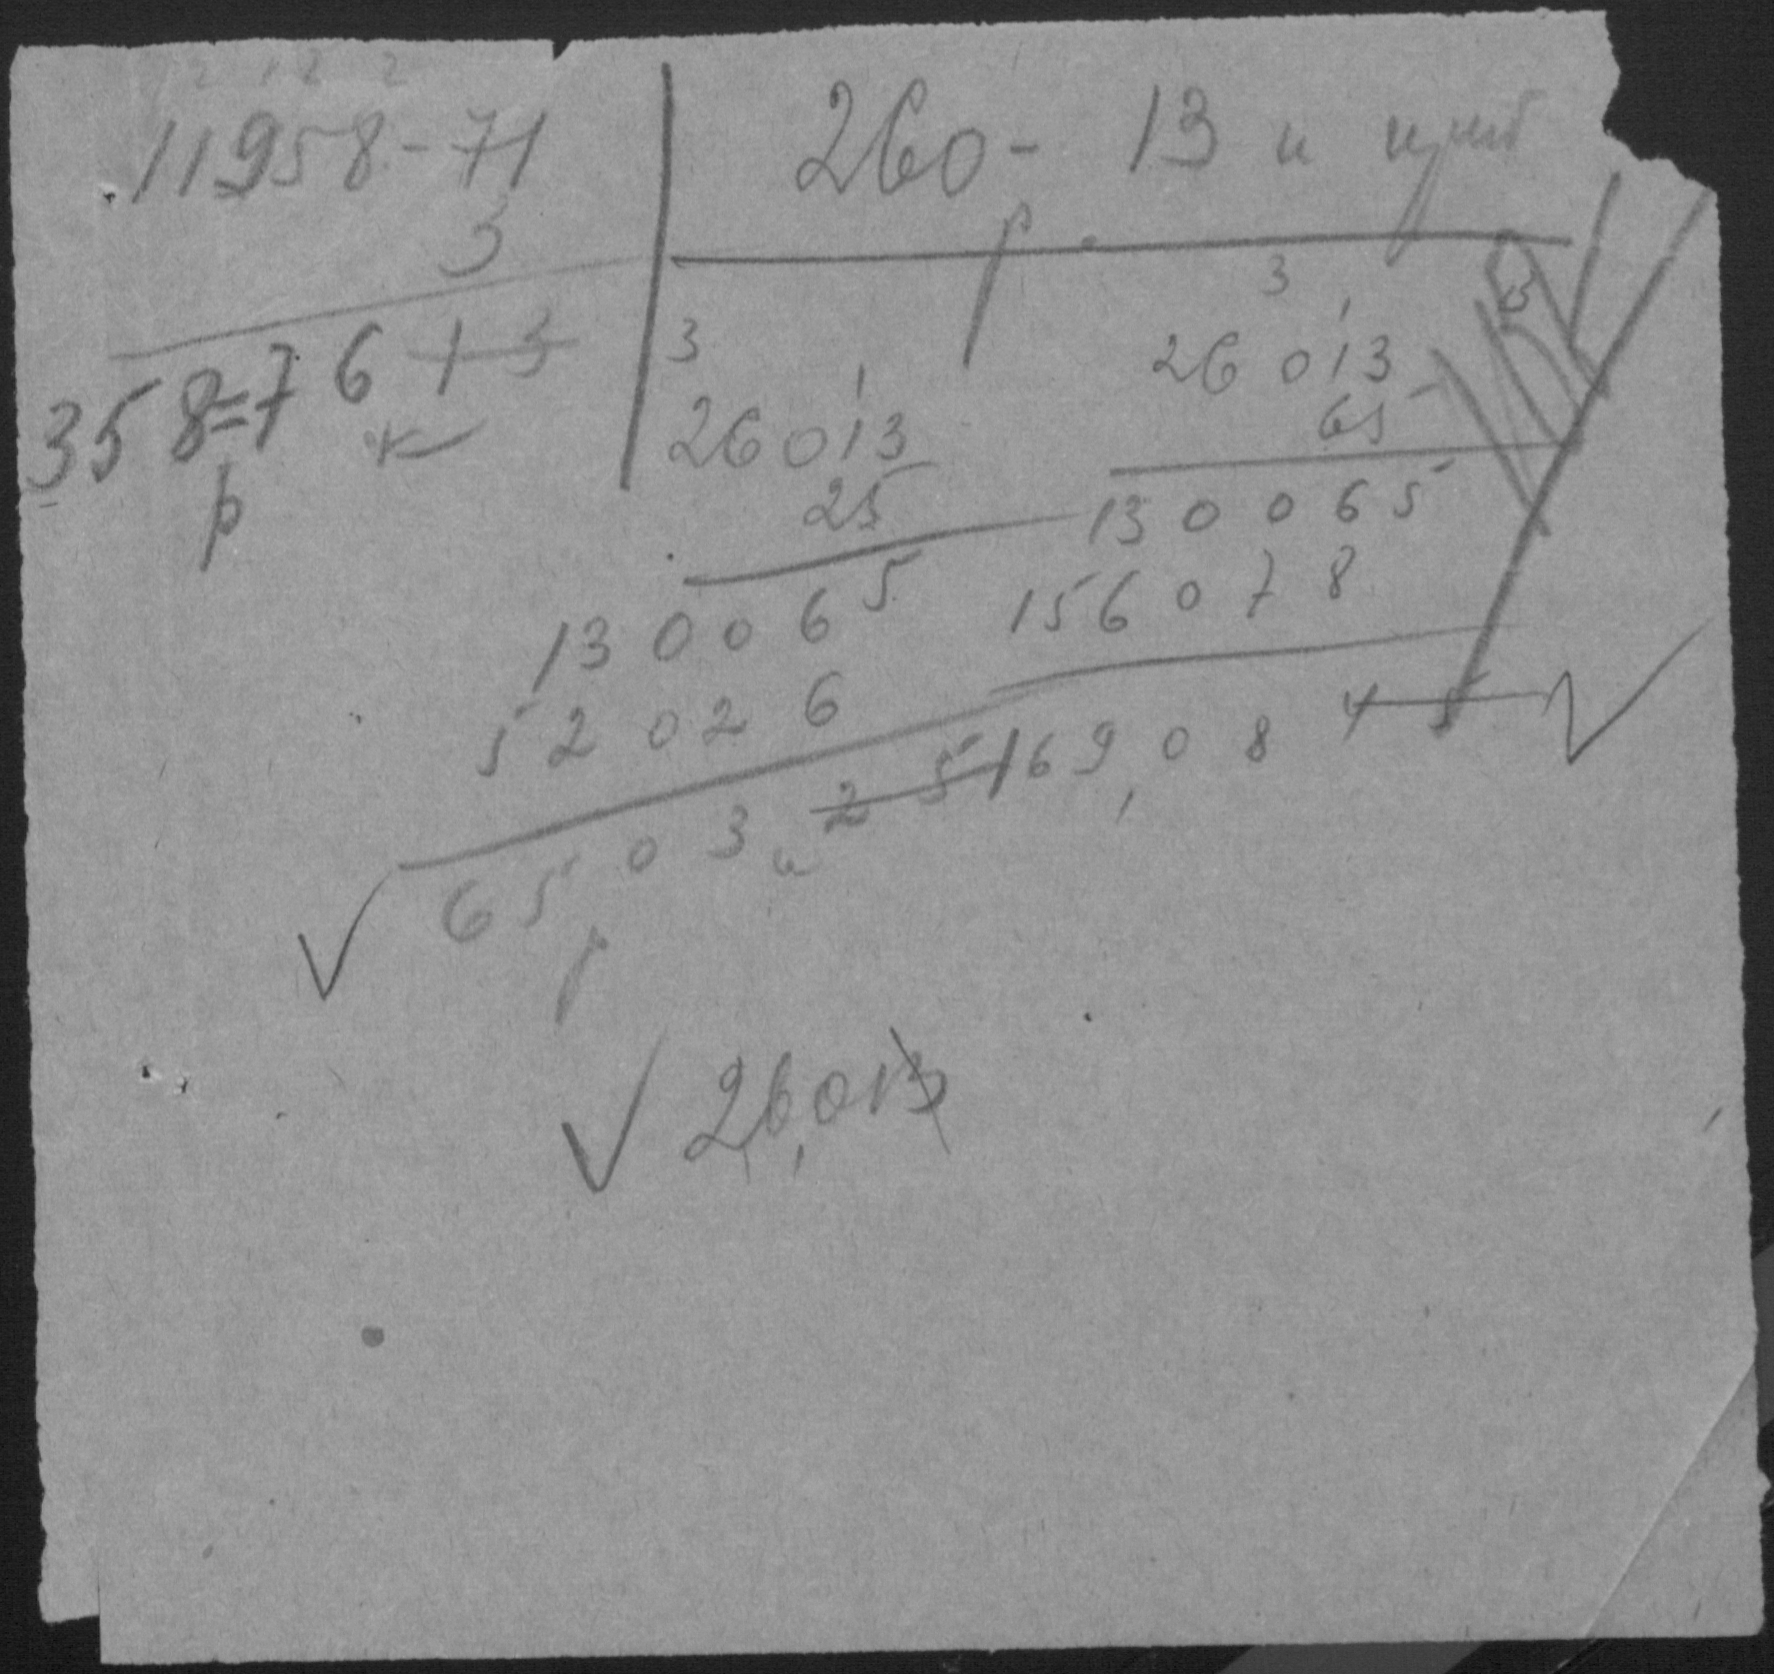 2 1 2 2
11958-71
3
358=76 13
р к
260р- 13 к
3
26013
25
130065
52026
65р03к25
3
26013
65
130065
156078
169,0845
26,013